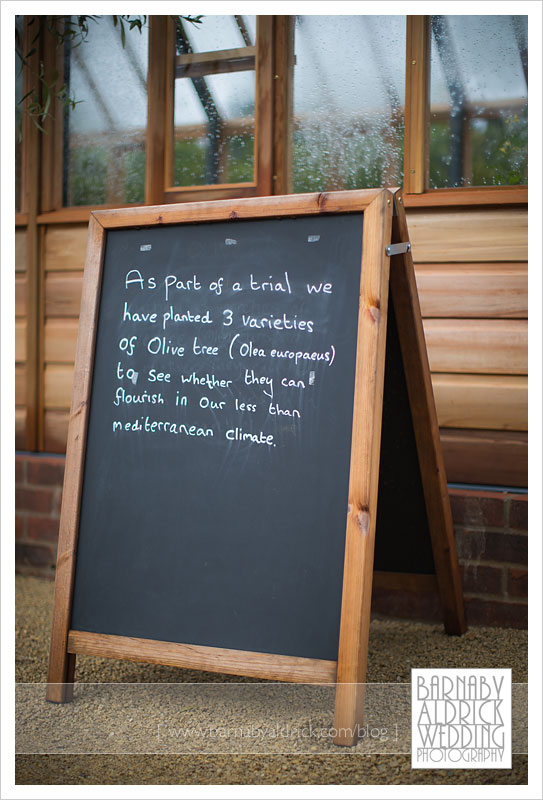 As part of a trial we
have planted 3 varieties
of Olive tree (Olea europaeus)
to see whether they can
flourish in our less than
mediterranean climate.
[ www.barnabyaldrick.com/blog ]
BARNABY
ALDRICK
WEDDING
PHOTOGRAPHY